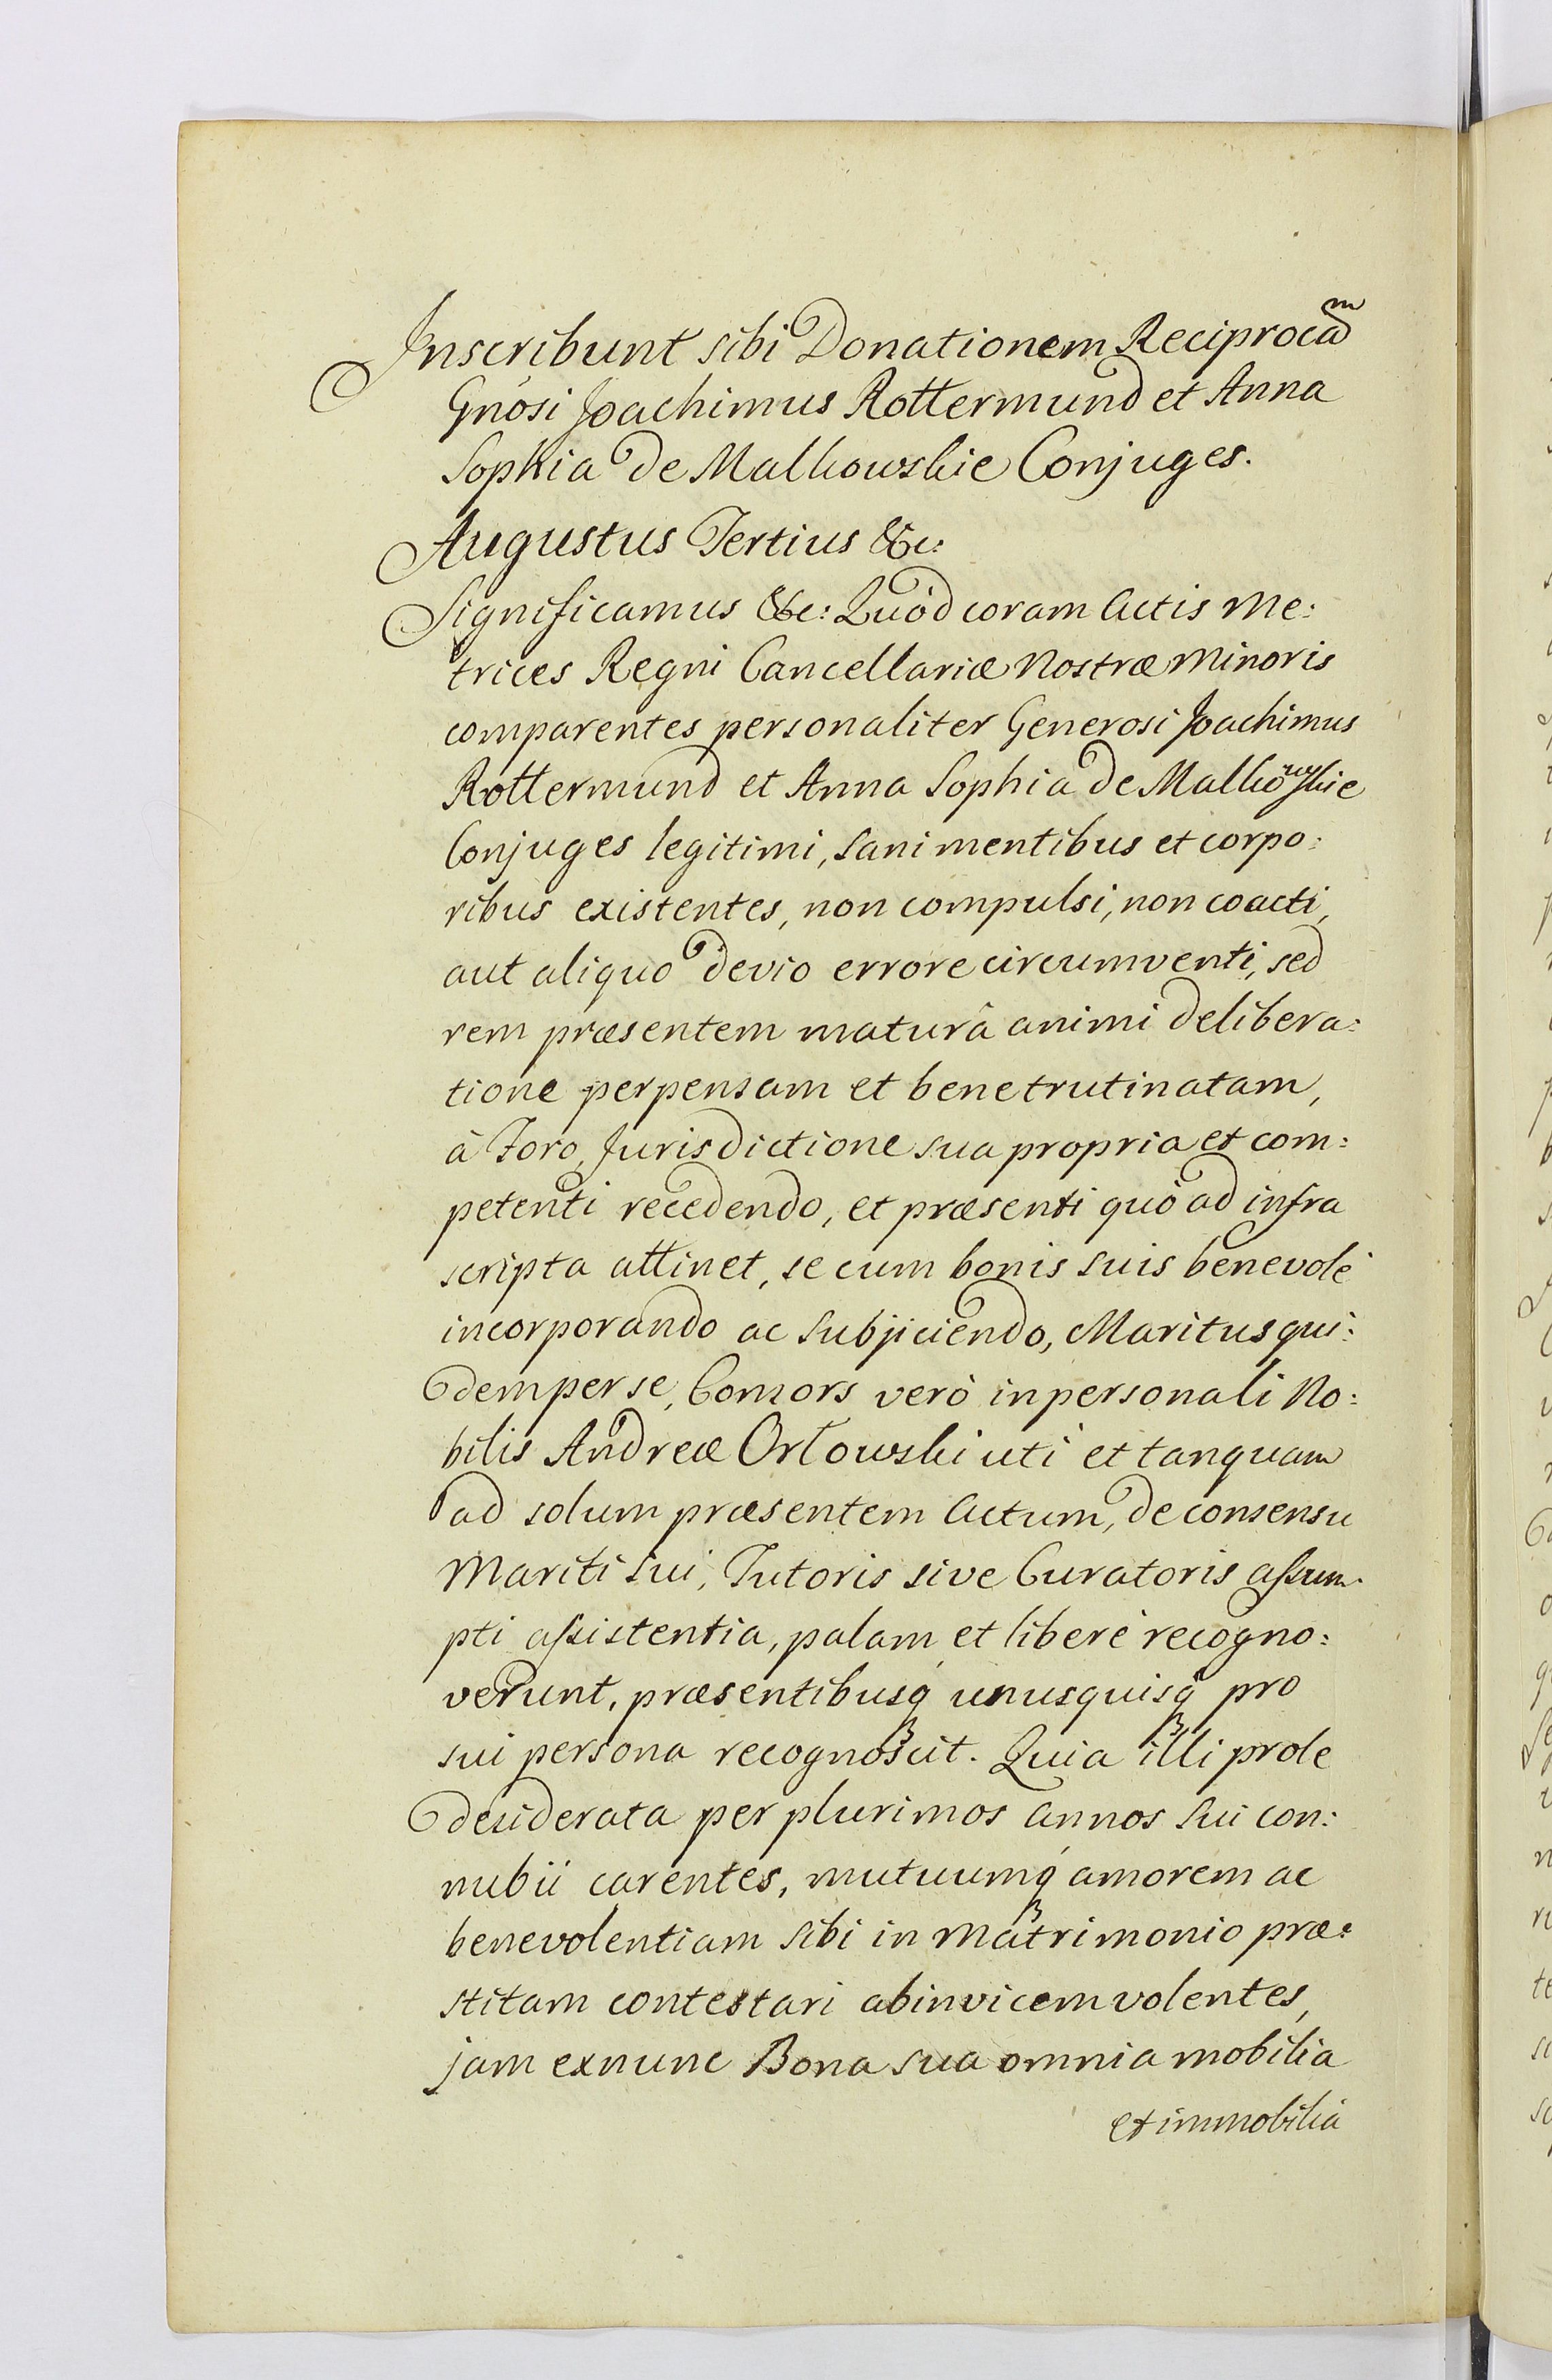 Inscribunt sibi Donationem Reciprocam
Gnosi Joachimus Rottermund et Anna
Sophia de Malkowskie Conjuges.
Augustus Tertius &c:
Significamus &c: Quòd coram Actis Me:
trices Regni Cancellariæ Nostræ Minoris
comparentes personaliter Generosi Joachimus
Rottermund et Anna Sophia de Malkowskie
Conjuges legitimi, sani mentibus et corpo:
ribus existentes, non compulsi, non coacti,
aut aliquo devio errore circumventi, sed
rem præsentem maturâ animi delibera:
tione perpensam et bene trutinatam,
â Foro, Jurisdictione sua propria et com:
petenti recedendo, et præsenti quò ad infra
scripta attinet, se cum bonis suis benevolè
incorporando ac subjiciendo, Maritus qui:
dem per se, Consors verò in personali No:
bilis Andreæ Orłowski uti et tanquam
ad solum præsentem Actum, de consensu
Mariti sui, Tutoris sive Curatoris assum:
pti assistentia, palam et liberè recogno:
verunt, præsentibusq unusquisq pro
sui persona recognoscit. Quia illi prole
desiderata per plurimos annos sui con:
nubii carentes, mutuumq amorem ac
benevolentiam sibi in Matrimonio præ:
stitam contestari abinvicem volentes,
jam exnunc Bona sua omnia mobilia
et immobilia